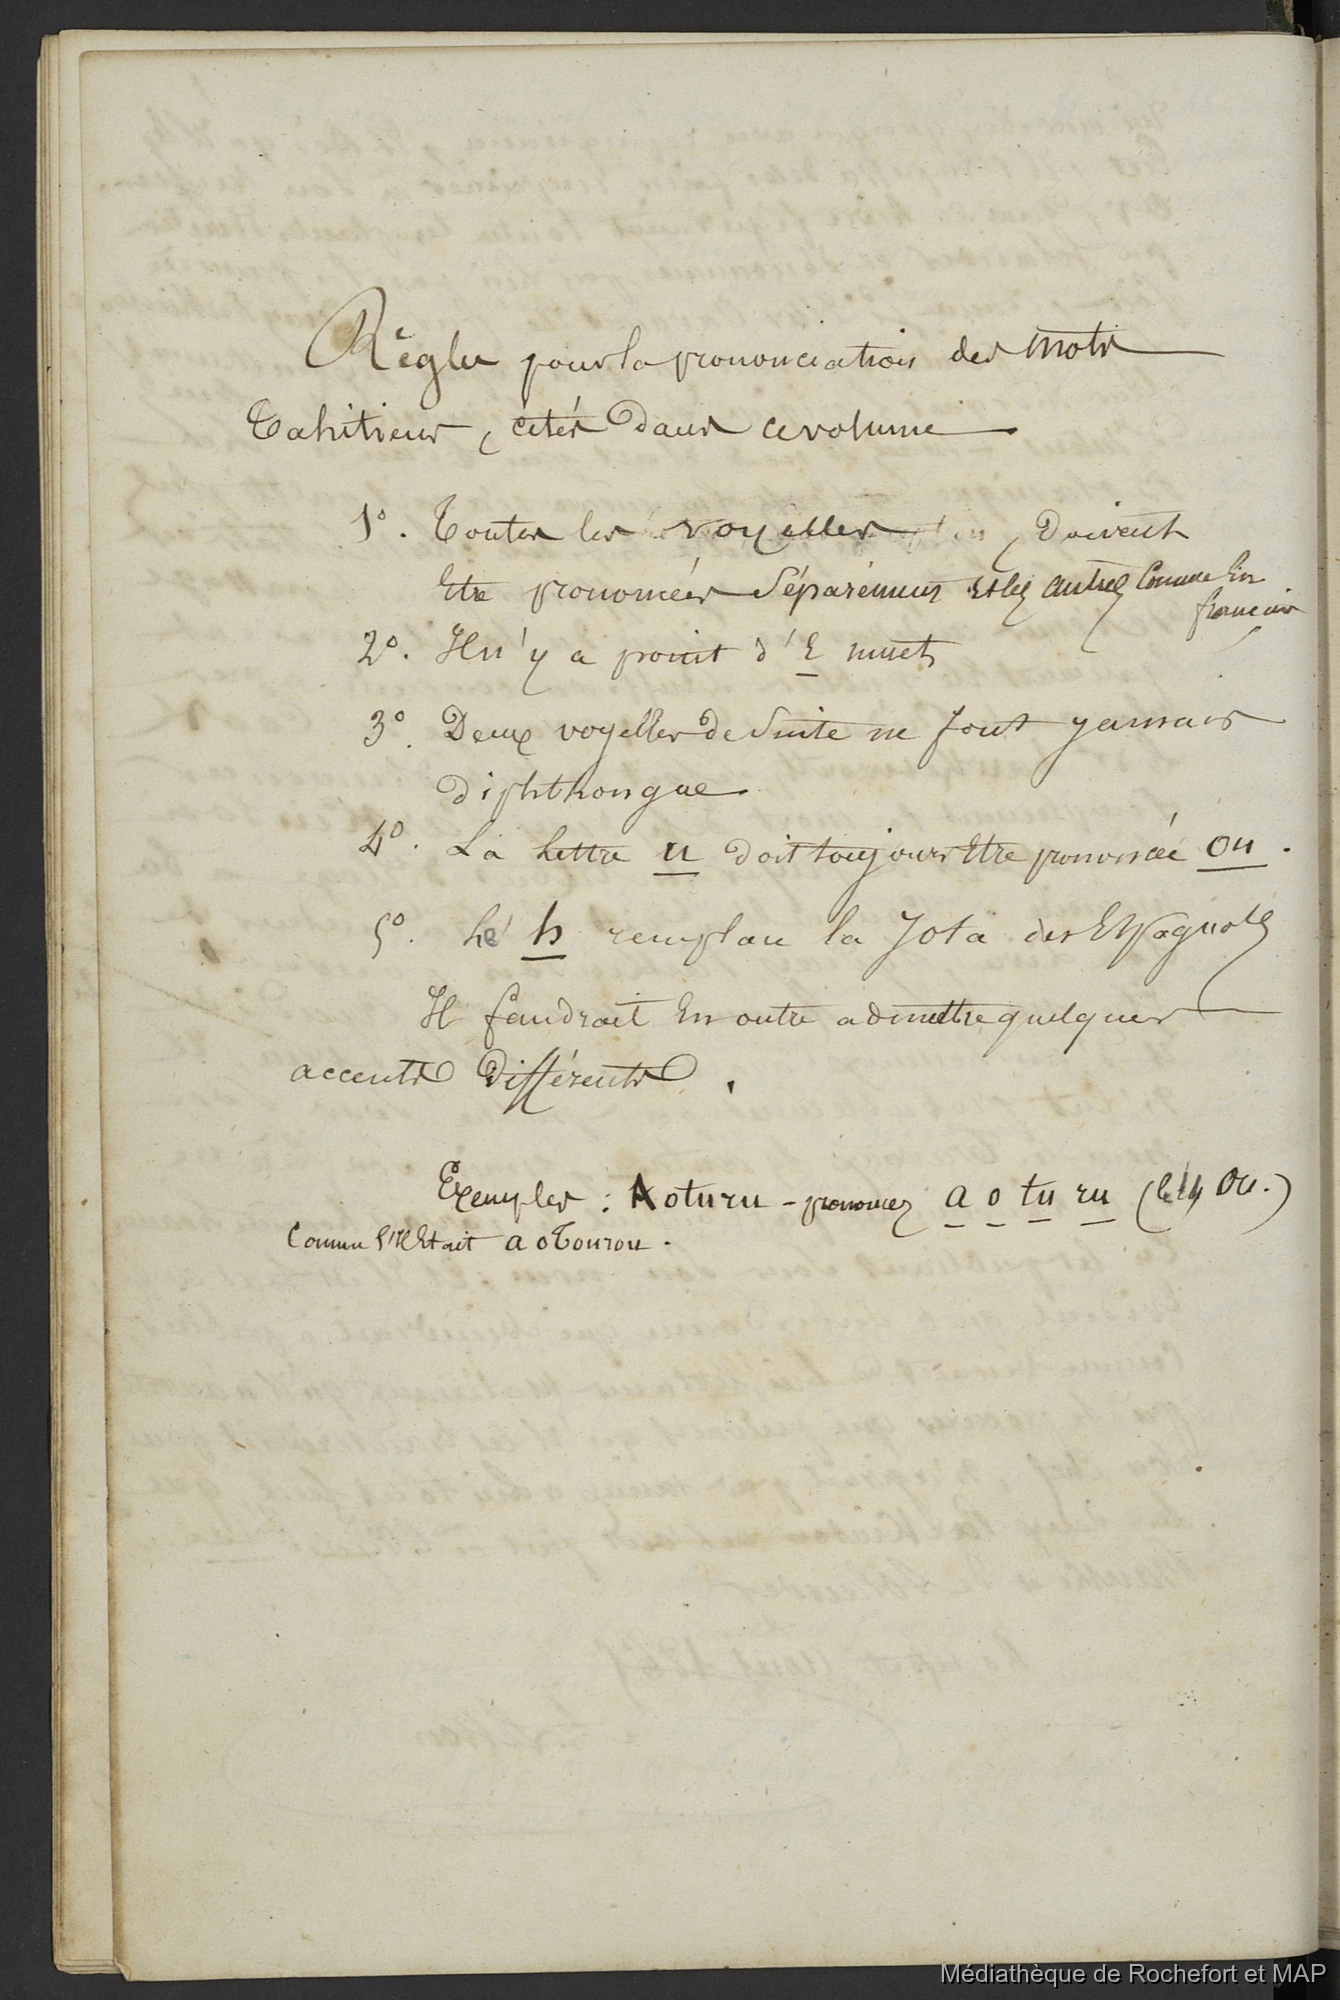 Règles pour la prononciation des mots
Tahitiens, cités dans ce volume
1º. Toutes les voyelles, doivent
Etre prononcées séparément et les autres Comme En
français
2º. Il n'y a point d'E muet
3º. Deux voyelles de suite ne font jamais
diphthongue
4º. La lettre u doit toujours Etre prononcée ou.
5º. Le h remplace la Jota des Espagnols
Il faudrait En outre admettre quelques
accents différents.
Exemples : Aoturu - prononcez a o tu ru (les u Ou.)
Comme s'il Etait aoTourou.
Médiathèque de Rochefort et MAP